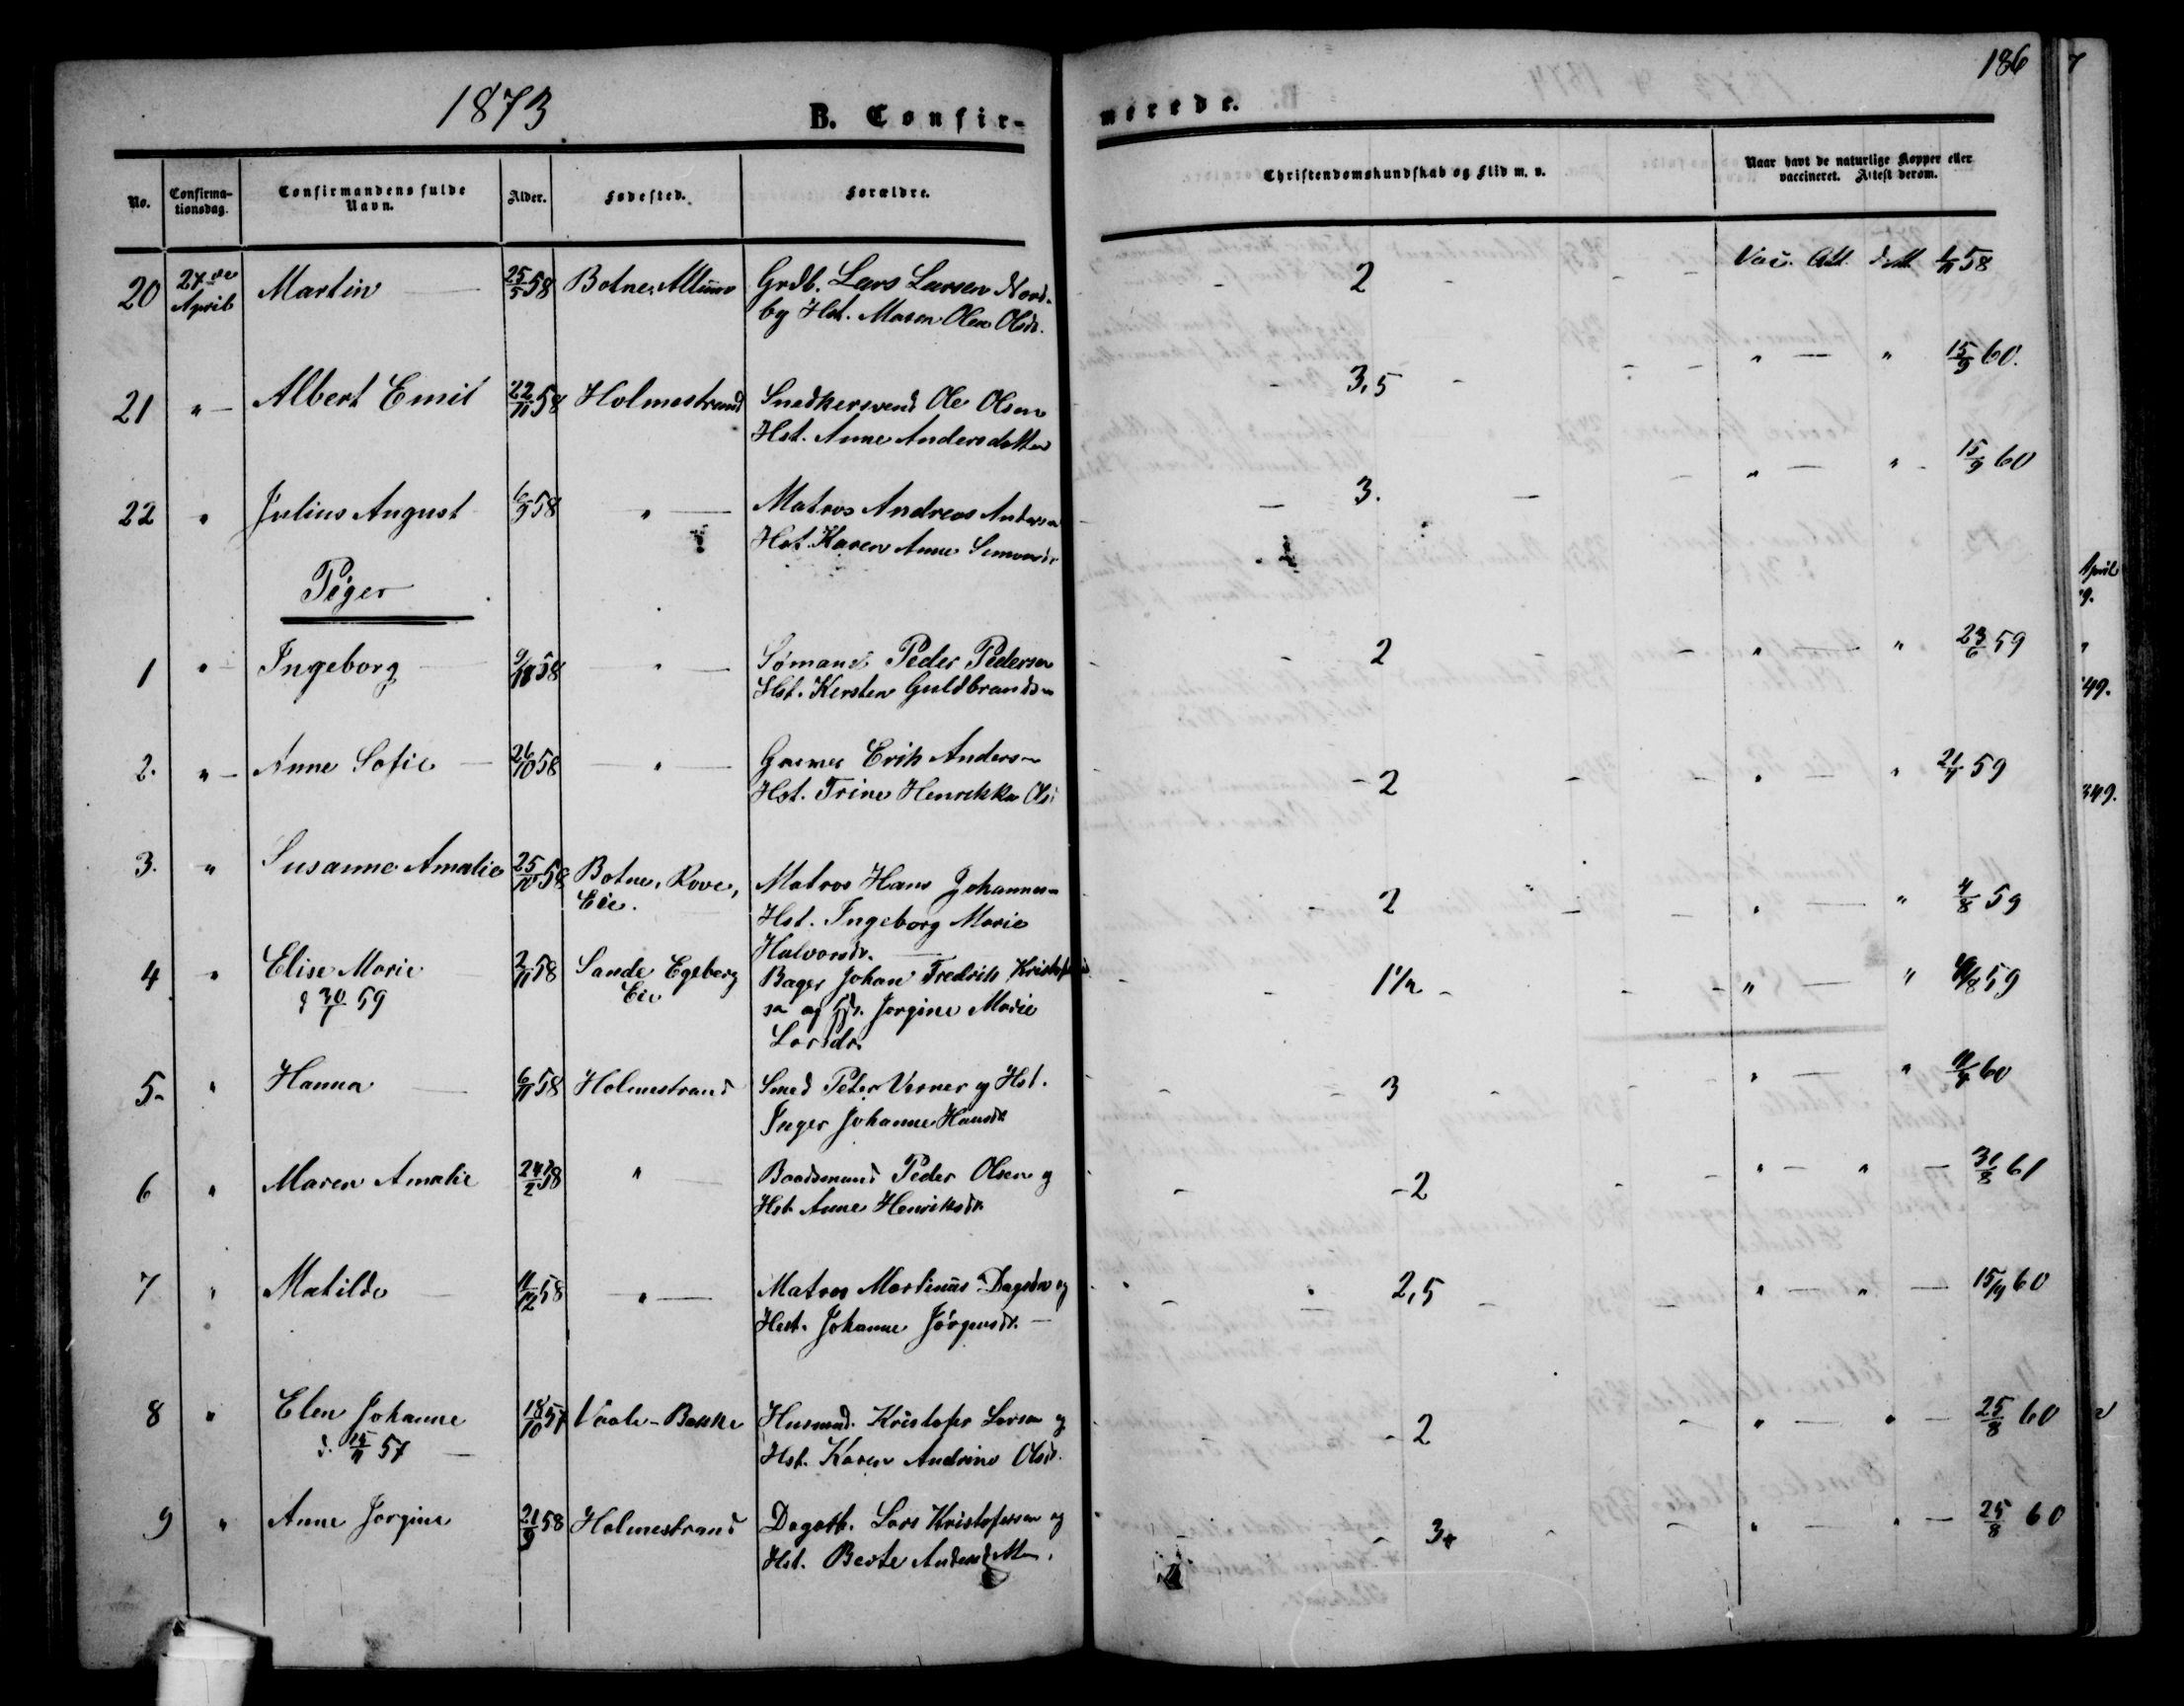 1873
B. Confir-
merede.
186
No.
Confirma-
tionsdag.
Confirmandens fulde
Navn.
Alder.
Fødested.
Forældre.
Christendomskundskab og Flid m. v.
Naar havt de naturlige Kopper eller
vaccineret. Attest derom.
20 27de April Martin 25/5 58 Botne, Grdb. Lars Larsen Nord-
by Hst. Maren Olea Olsdr. 2 Vac. Att. 58
21 " Albert Emil 22/11 58 Holmestrand Snedkersvend Ole Olsen
Hst. Anne Andersdatter 3,5 " — " 15/9 60.
22 " Julius August 6/9 58 " Matros Andreas Andersen
Hst. Karen Anne 3. " — " 15/9 60
Piger
1 " Ingeborg 9/10 58 " Sømand Peder Pedersen
Hst. Kersten Guldbrands 2 " — " 23/6 59
2. " Anne Sofie 26/10 58 " Erik Anders
Hst. Trine 2 " — " 59
3. " Susanne Amalie 25/10 58 Botne, Rove,
Eie. Matros Hans Johannes
Hst. Ingeborg Marie
Halvorsdr. 2 " — " 4/8 59
4 " Elise Marie 2/11 58 Sande Egeberg
Eie Bager Johan Fredrik
30/1 59 Jorgine Marie
Larsdr. 1 1/2 " — " 59
5. " Hanna 6/11 58 Holmestrand Smed Peter Verner og Hst.
Inger Johanne Hansdr. 3 " — " 60
6 " Maren Amalie 24/2 58 " Baadsmand Peder Olsen og
Hst. Anne Henriksdr. 2 " — " — 31/8 61
7 " Matilde 11/12 58 " Matros Martinus og
Hst. Johanne Jörgensdr. 2,5 " — " — 15/9 60
8 " Elen Johanne 18/10 57 Vaale - Bakke Husmd. Kristofer Larsen og
d. 15/11 57 Hst. Karen Andrine Olsdr. 2 " — " — 25/8 60
9 " Anne Jorgine 21/9 58 Holmestrand Dagarb. Lars Kristofersen og
Hst. Berte 3+ " — " — 25/8 60